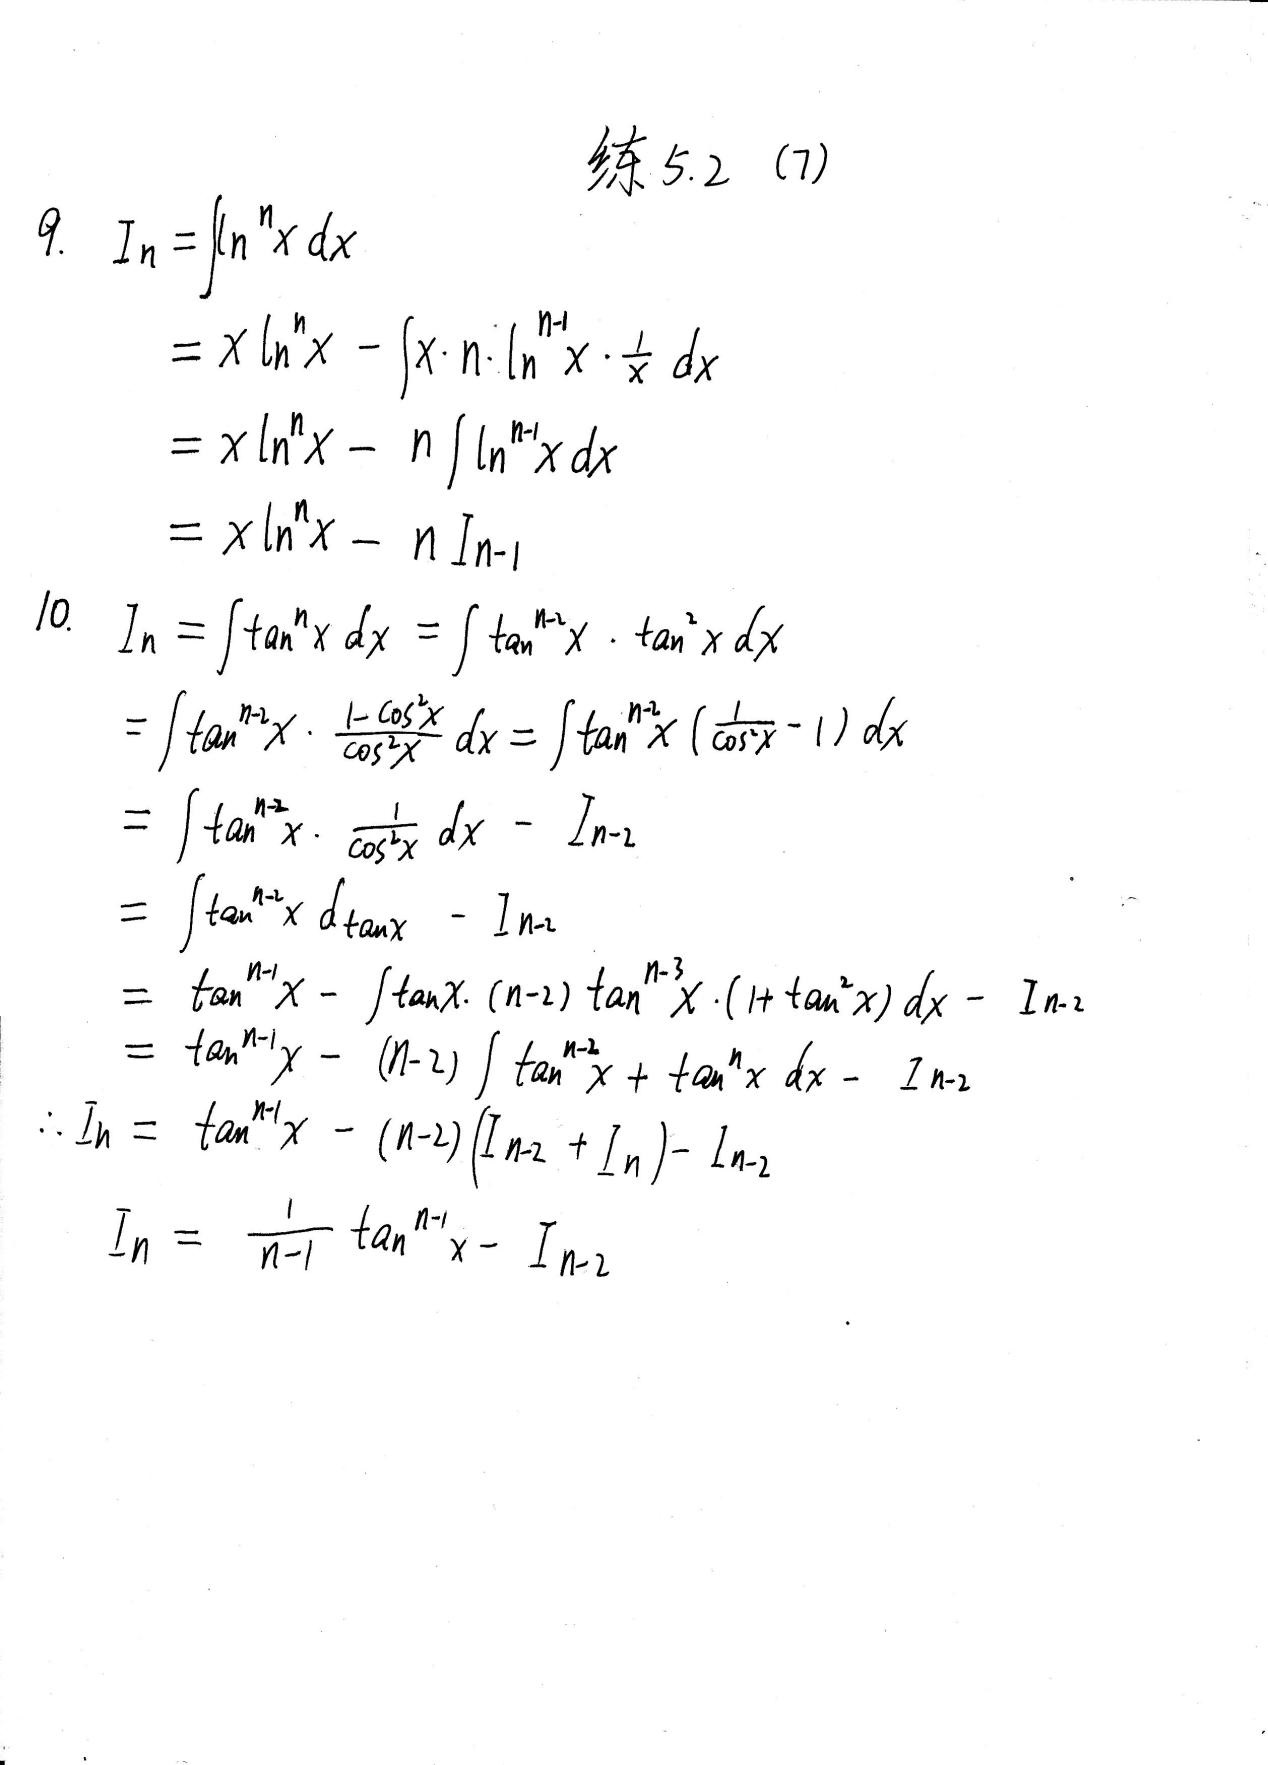 练 5.2 (7)
9. Iₙ = ∫lnⁿx dx
= x lnⁿx - ∫x · n · lnⁿ⁻¹x · 1/x dx
= x lnⁿx - n ∫ lnⁿ⁻¹x dx
= x lnⁿx - n Iₙ₋₁
10. Iₙ = ∫tanⁿx dx = ∫ tanⁿ⁻²x · tan²x dx
= ∫tanⁿ⁻²x · (1-cos²x)/(cos²x) dx = ∫tanⁿ⁻²x (1/(cos²x) - 1) dx
= ∫tanⁿ⁻²x · 1/(cos²x) dx - Iₙ₋₂
= ∫tanⁿ⁻²x d tanx - Iₙ₋₂
= tanⁿ⁻¹x - ∫tanx · (n-2) tanⁿ⁻³x · (1+tan²x) dx - Iₙ₋₂
= tanⁿ⁻¹x - (n-2) ∫ tanⁿ⁻²x + tanⁿx dx - Iₙ₋₂
∴ Iₙ = tanⁿ⁻¹x - (n-2)(Iₙ₋₂ + Iₙ) - Iₙ₋₂
Iₙ = 1/(n-1) tanⁿ⁻¹x - Iₙ₋₂